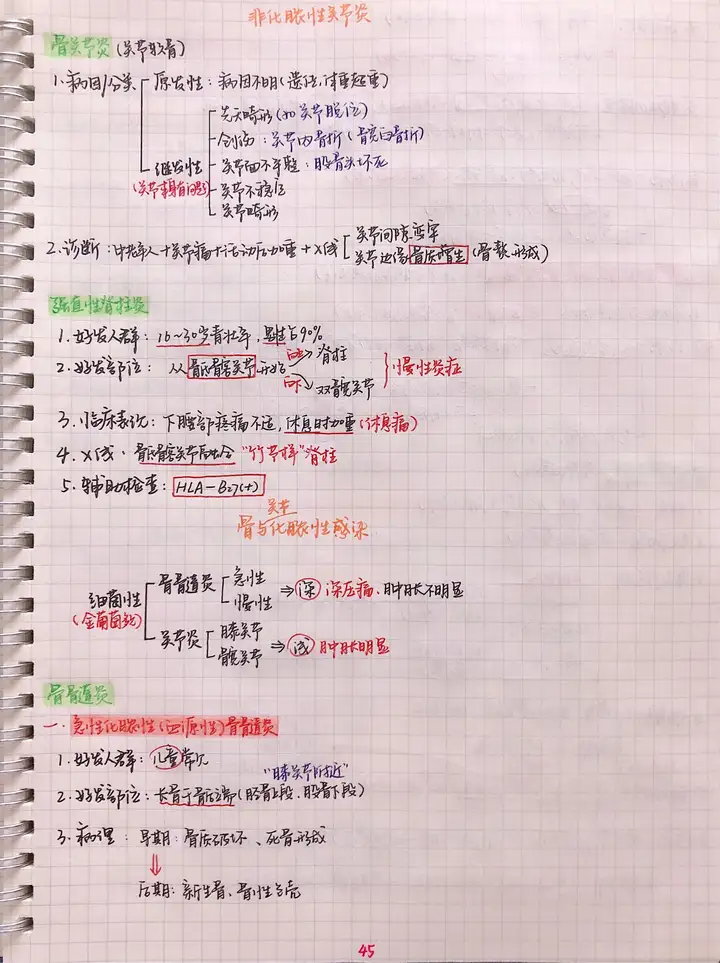 非化脓性关节炎
骨关节炎(关节软骨)
1.病因/分类 原发性:病因不明(遗传,体重超重)
先天畸形(如关节脱位)
创伤:关节内骨折(髋臼骨折)
继发性 关节面不平整:股骨头坏死
(关节本身有问题) 关节不稳定
关节畸形
2.诊断:中老年人+关节痛+活动后加重+X线 关节间隙变窄
关节边缘骨质增生(骨赘形成)
强直性脊柱炎
1.好发人群:16~30岁青壮年,男性占90%
2.好发部位:从骶髂关节开始 向上 脊柱
向下 双髋关节 慢性炎症
3.临床表现:下腰部疼痛不适,休息时加重(休息痛)
4.X线:骶髂关节融合"竹节样"脊柱
5.辅助检查:HLA-B27(+)
骨与关节化脓性感染
细菌性 骨髓炎 急性 慢性 ⇒ 深 深压痛、肿胀不明显
(金葡菌致)
关节炎 膝关节 髋关节 ⇒ 浅 肿胀明显
骨髓炎
一.急性化脓性(血源性)骨髓炎
1.好发人群:儿童常见
"膝关节附近"
2.好发部位:长骨干骺端(胫骨上段、股骨下段)
3.病理:早期:骨质破坏、死骨形成
⇓
后期:新生骨、骨性包壳
45